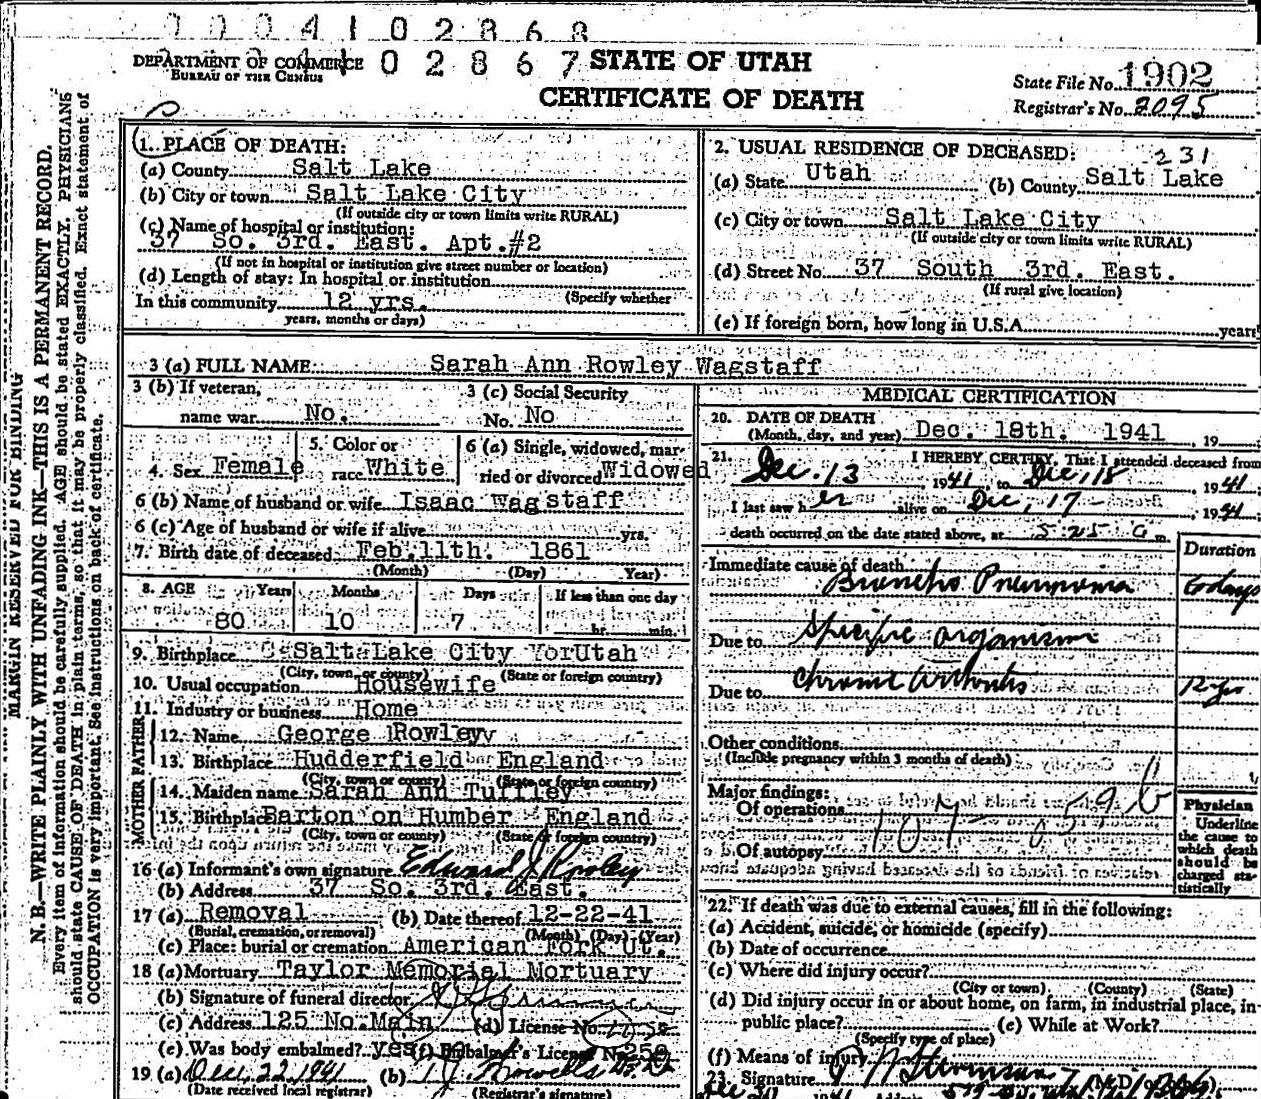 0 0 4 1 0 2 8 6 8
DEPARTMENT OF COMMERCE
BUREAU OF THE CENSUS
0 2 8 6 7
STATE OF UTAH
CERTIFICATE OF DEATH
State File No. 1902
Registrar's No. 2095
MARGIN RESERVED FOR BINDING
N. B.—WRITE PLAINLY WITH UNFADING INK—THIS IS A PERMANENT RECORD.
Every item of information should be carefully supplied. AGE should be stated EXACTLY. PHYSICIANS
should state CAUSE OF DEATH in plain terms, so that it may be properly classified. Exact statement of
OCCUPATION is very important. See instructions on back of certificate.
1. PLACE OF DEATH:
(a) County Salt Lake
(b) City or town Salt Lake City
(If outside city or town limits write RURAL)
(c) Name of hospital or institution:
37 So. 3rd. East. Apt.#2
(If not in hospital or institution give street number or location)
(d) Length of stay: In hospital or institution
(Specify whether
In this community 12 yrs.
years, months or days)
2. USUAL RESIDENCE OF DECEASED: 231
(a) State Utah (b) County Salt Lake
(c) City or town Salt Lake City
(If outside city or town limits write RURAL)
(d) Street No. 37 South 3rd. East.
(If rural give location)
(e) If foreign born, how long in U.S.A. years
3 (a) FULL NAME Sarah Ann Rowley Wagstaff
3 (b) If veteran, name war No.
3 (c) Social Security No. No
4. Sex Female
5. Color or race White
6 (a) Single, widowed, married or divorced Widowed
6 (b) Name of husband or wife Isaac Wagstaff
6 (c) Age of husband or wife if alive yrs.
7. Birth date of deceased: Feb. 11th. 1861
(Month) (Day) Year)
8. AGE Years Months Days If less than one day
80 10 7 hr. min.
9. Birthplace Salt Lake City Utah
(City, town, or county) (State or foreign country)
10. Usual occupation Housewife
11. Industry or business Home
FATHER
12. Name George Rowley
13. Birthplace Hudderfield England
(City, town or county) (State or foreign country)
MOTHER
14. Maiden name Sarah Ann Tuffley
15. Birthplace Barton on Humber England
(City, town or county) (State or foreign country)
16 (a) Informant's own signature Edward J. Rowley
(b) Address 37 So. 3rd. East.
17 (a) Removal (b) Date thereof 12-22-41
(Burial, cremation, or removal) (Month) (Day) (Year)
(c) Place: burial or cremation American Fork Ut.
18 (a) Mortuary Taylor Memorial Mortuary
(b) Signature of funeral director
(c) Address 125 No. Main (d) License No.
(e) Was body embalmed? yes (f) Embalmer's License No. 250
19 (a) Dec. 22, 1941 (b)
(Date received local registrar) (Registrar's signature)
MEDICAL CERTIFICATION
20. DATE OF DEATH
(Month, day, and year) Dec. 18th. 1941, 19
21. I HEREBY CERTIFY, That I attended deceased from
Dec. 13, 1941, to Dec, 18, 1941
I last saw her alive on Dec, 17, 1941
death occurred on the date stated above, at 5:25 a m.
Duration
Immediate cause of death
Broncho Pneumonia 6 days
Due to Specific organism
Due to Chronic Arthritis 12 yrs
Other conditions
(Include pregnancy within 3 months of death)
Major findings:
Of operations
107 059 b
Of autopsy
Physician
Underline
the cause to
which death
should be
charged statistically
22. If death was due to external causes, fill in the following:
(a) Accident, suicide, or homicide (specify)
(b) Date of occurrence
(c) Where did injury occur?
(City or town) (County) (State)
(d) Did injury occur in or about home, on farm, in industrial place, in
public place? (e) While at Work?
(Specify type of place)
(f) Means of injury
23. Signature